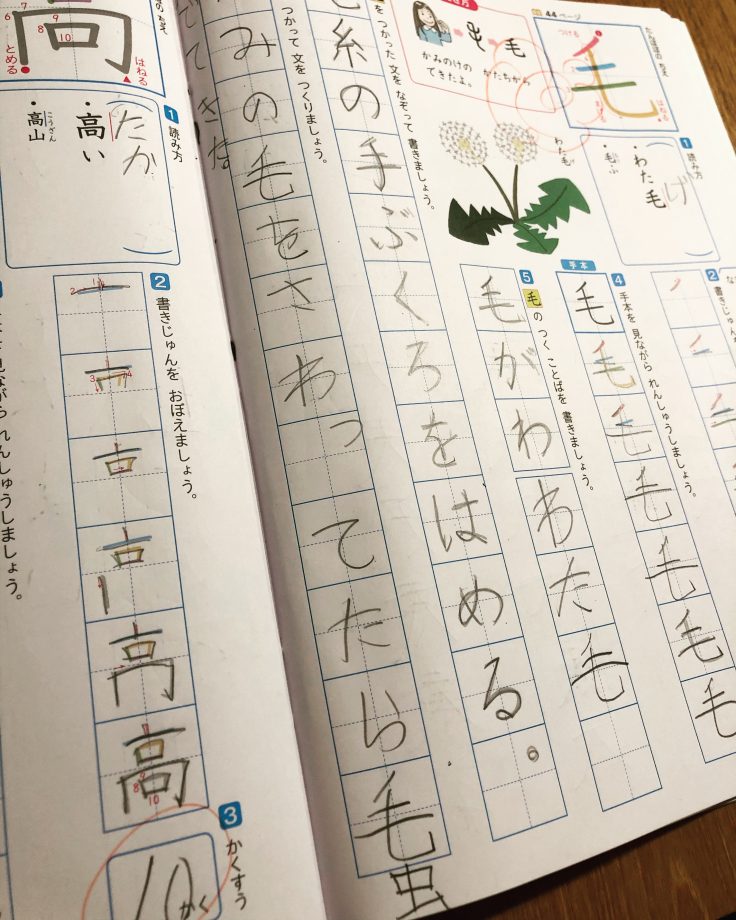 44ページ
つける
はねる
毛
かみのけの かたちから
できたよ。
わた毛
1 読み方
げ
・わた毛
・毛ぶ
2
4 手本を 見ながら れんしゅうしましょう。
手本
毛毛毛毛毛毛毛
5 毛の つく ことばを 書きましょう。
毛がわ
わた毛
をつかった 文を なぞって 書きましょう。
毛糸の手ぶくろをはめる。
つかって 文を つくりましょう。
みの毛をさわってたら毛虫
高
6
7
8
9
10
とめる
はねる
1 読み方
たか
・高い
こうざん
・高山
2 書きじゅんを おぼえましょう。
高
8
9
10
3 かくすう
10かく
見ながら れんしゅうしましょう。